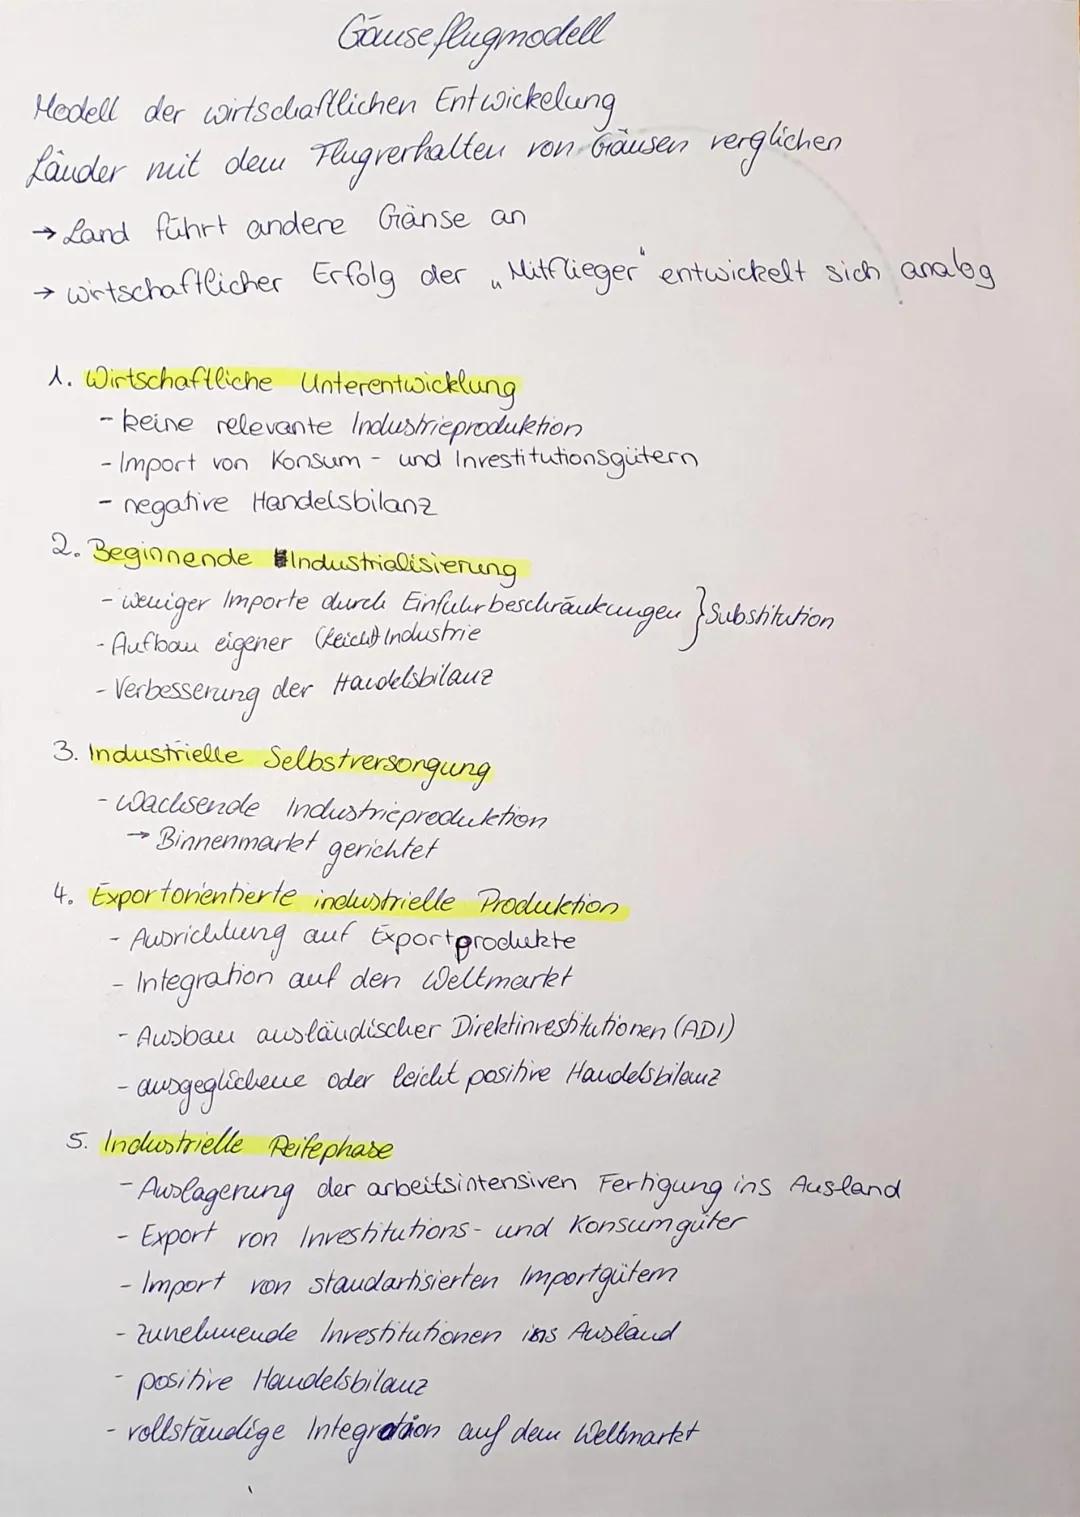 Gänseflugmodell
Modell der wirtschaftlichen Entwickelung
Länder mit dem Flugverhalten von Gänsen verglichen
→ Land führt andere Gänse an
→ wirtschaftlicher Erfolg der „Mitflieger" entwickelt sich analog
1. Wirtschaftliche Unterentwicklung
- keine relevante Industrieproduktion
- Import von Konsum- und Investitutionsgütern
- negative Handelsbilanz
2. Beginnende Industrialisierung
- weniger Importe durch Einfuhrbeschränkungen } Substitution
- Aufbau eigener (Leicht) Industrie
- Verbesserung der Handelsbilanz
3. Industrielle Selbstversorgung
- wachsende Industrieproduktion
→ Binnenmarkt gerichtet
4. Exportorientierte industrielle Produktion
- Ausrichtung auf Exportprodukte
- Integration auf den Weltmarkt
- Ausbau ausländischer Direktinvestitutionen (ADI)
- ausgeglichene oder leicht positive Handelsbilanz
5. Industrielle Reifephase
- Auslagerung der arbeitsintensiven Fertigung ins Ausland
- Export von Investitutions- und Konsumgüter
- Import von standartisierten Importgütern
- zunehmende Investitutionen ins Ausland
- positive Handelsbilanz
- vollständige Integration auf dem Weltmarkt